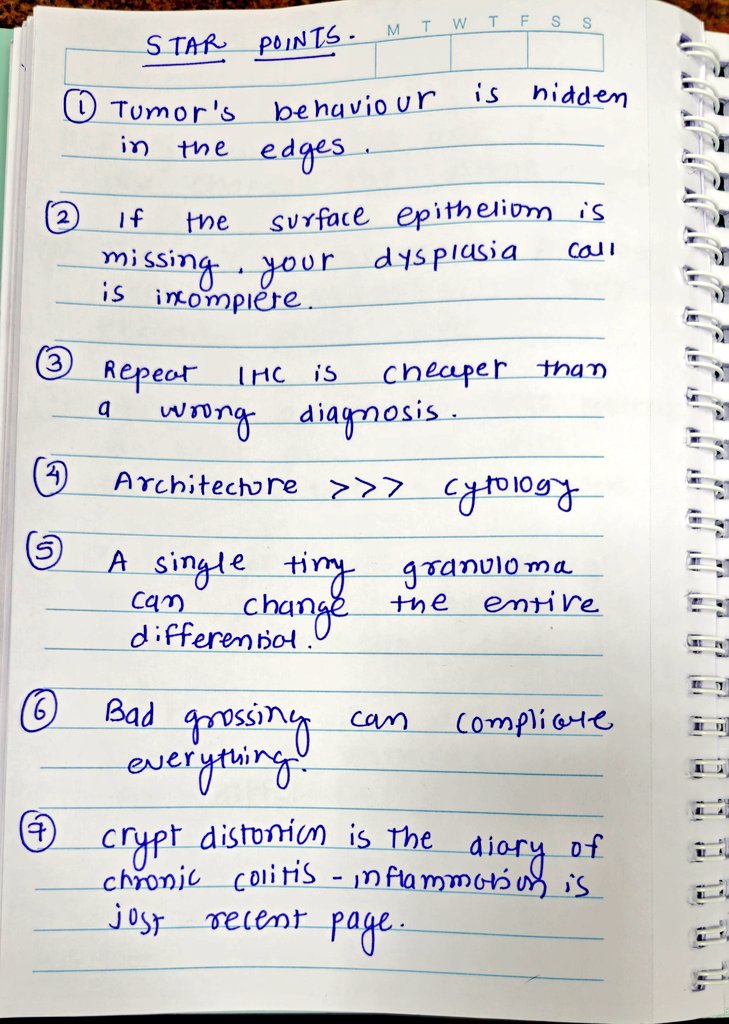 M T W T F S S
STAR POINTS.
① Tumor's behaviour is hidden
in the edges.
② If the surface epithelium is
missing, your dysplasia call
is incomplete.
③ Repeat IHC is cheaper than
a wrong diagnosis.
④ Architecture >>> cytology
⑤ A single tiny granuloma
can change the entire
differential.
⑥ Bad grossing can complicate
everything.
⑦ Crypt distortion is the diary of
chronic colitis - inflammation is
just recent page.